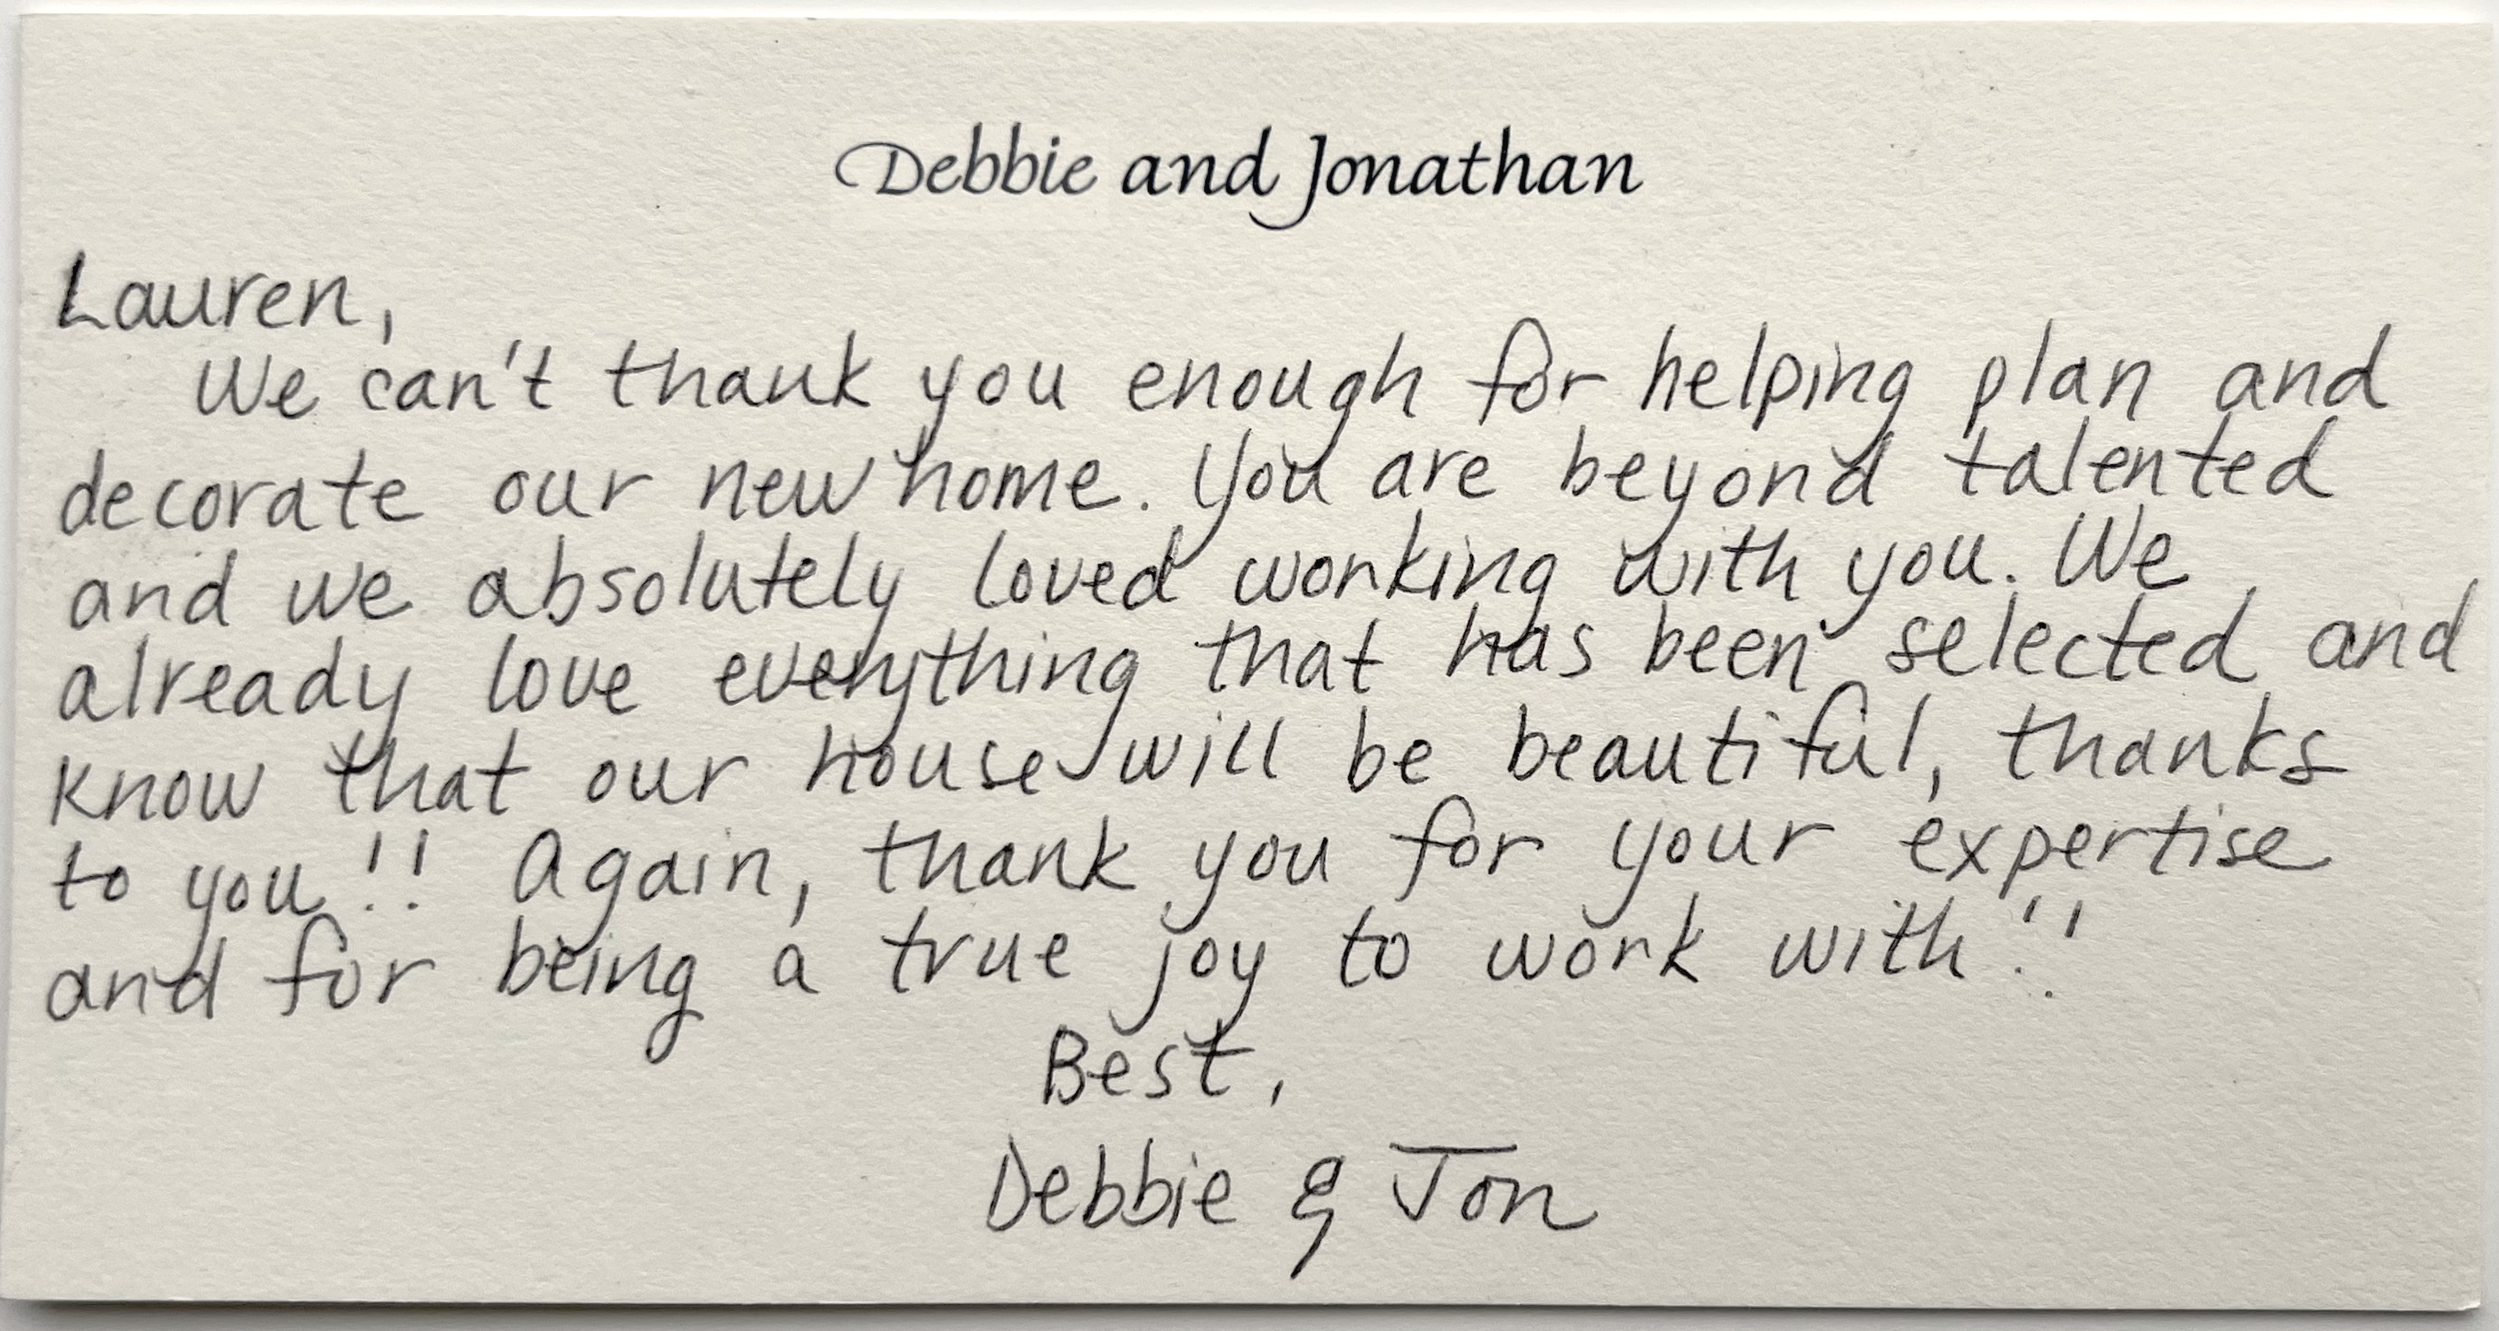 Debbie and Jonathan
Lauren,
We can't thank you enough for helping plan and
decorate our new home. You are beyond talented
and we absolutely loved working with you. We
already love everything that has been selected and
know that our house will be beautiful, thanks
to you!! Again, thank you for your expertise
and for being a true joy to work with!!
Best,
Debbie & Jon